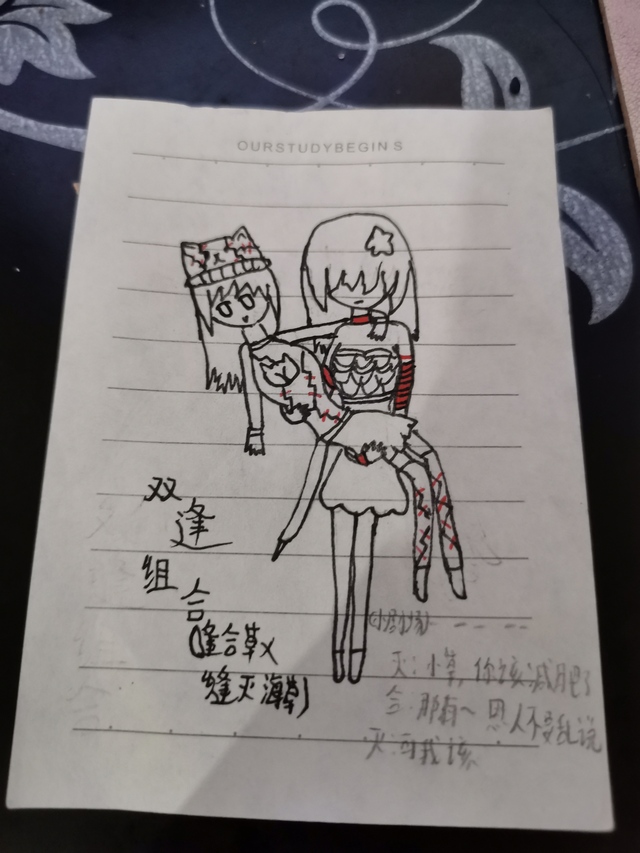 OURSTUDYBEGINS
双
逢
组
合
缝合草X
缝灭海草
小剧场
灭:小草,你该减肥了
合:那有~ 恩人不要乱说
灭:可我